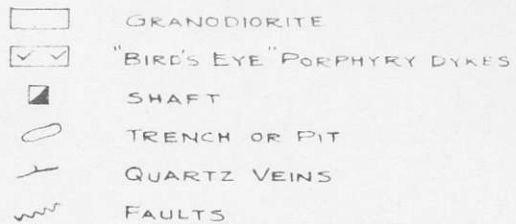 GRANODIORITE
"BIRD'S EYE" PORPHYRY DYKES
SHAFT
TRENCH OR PIT
QUARTZ VEINS
FAULTS